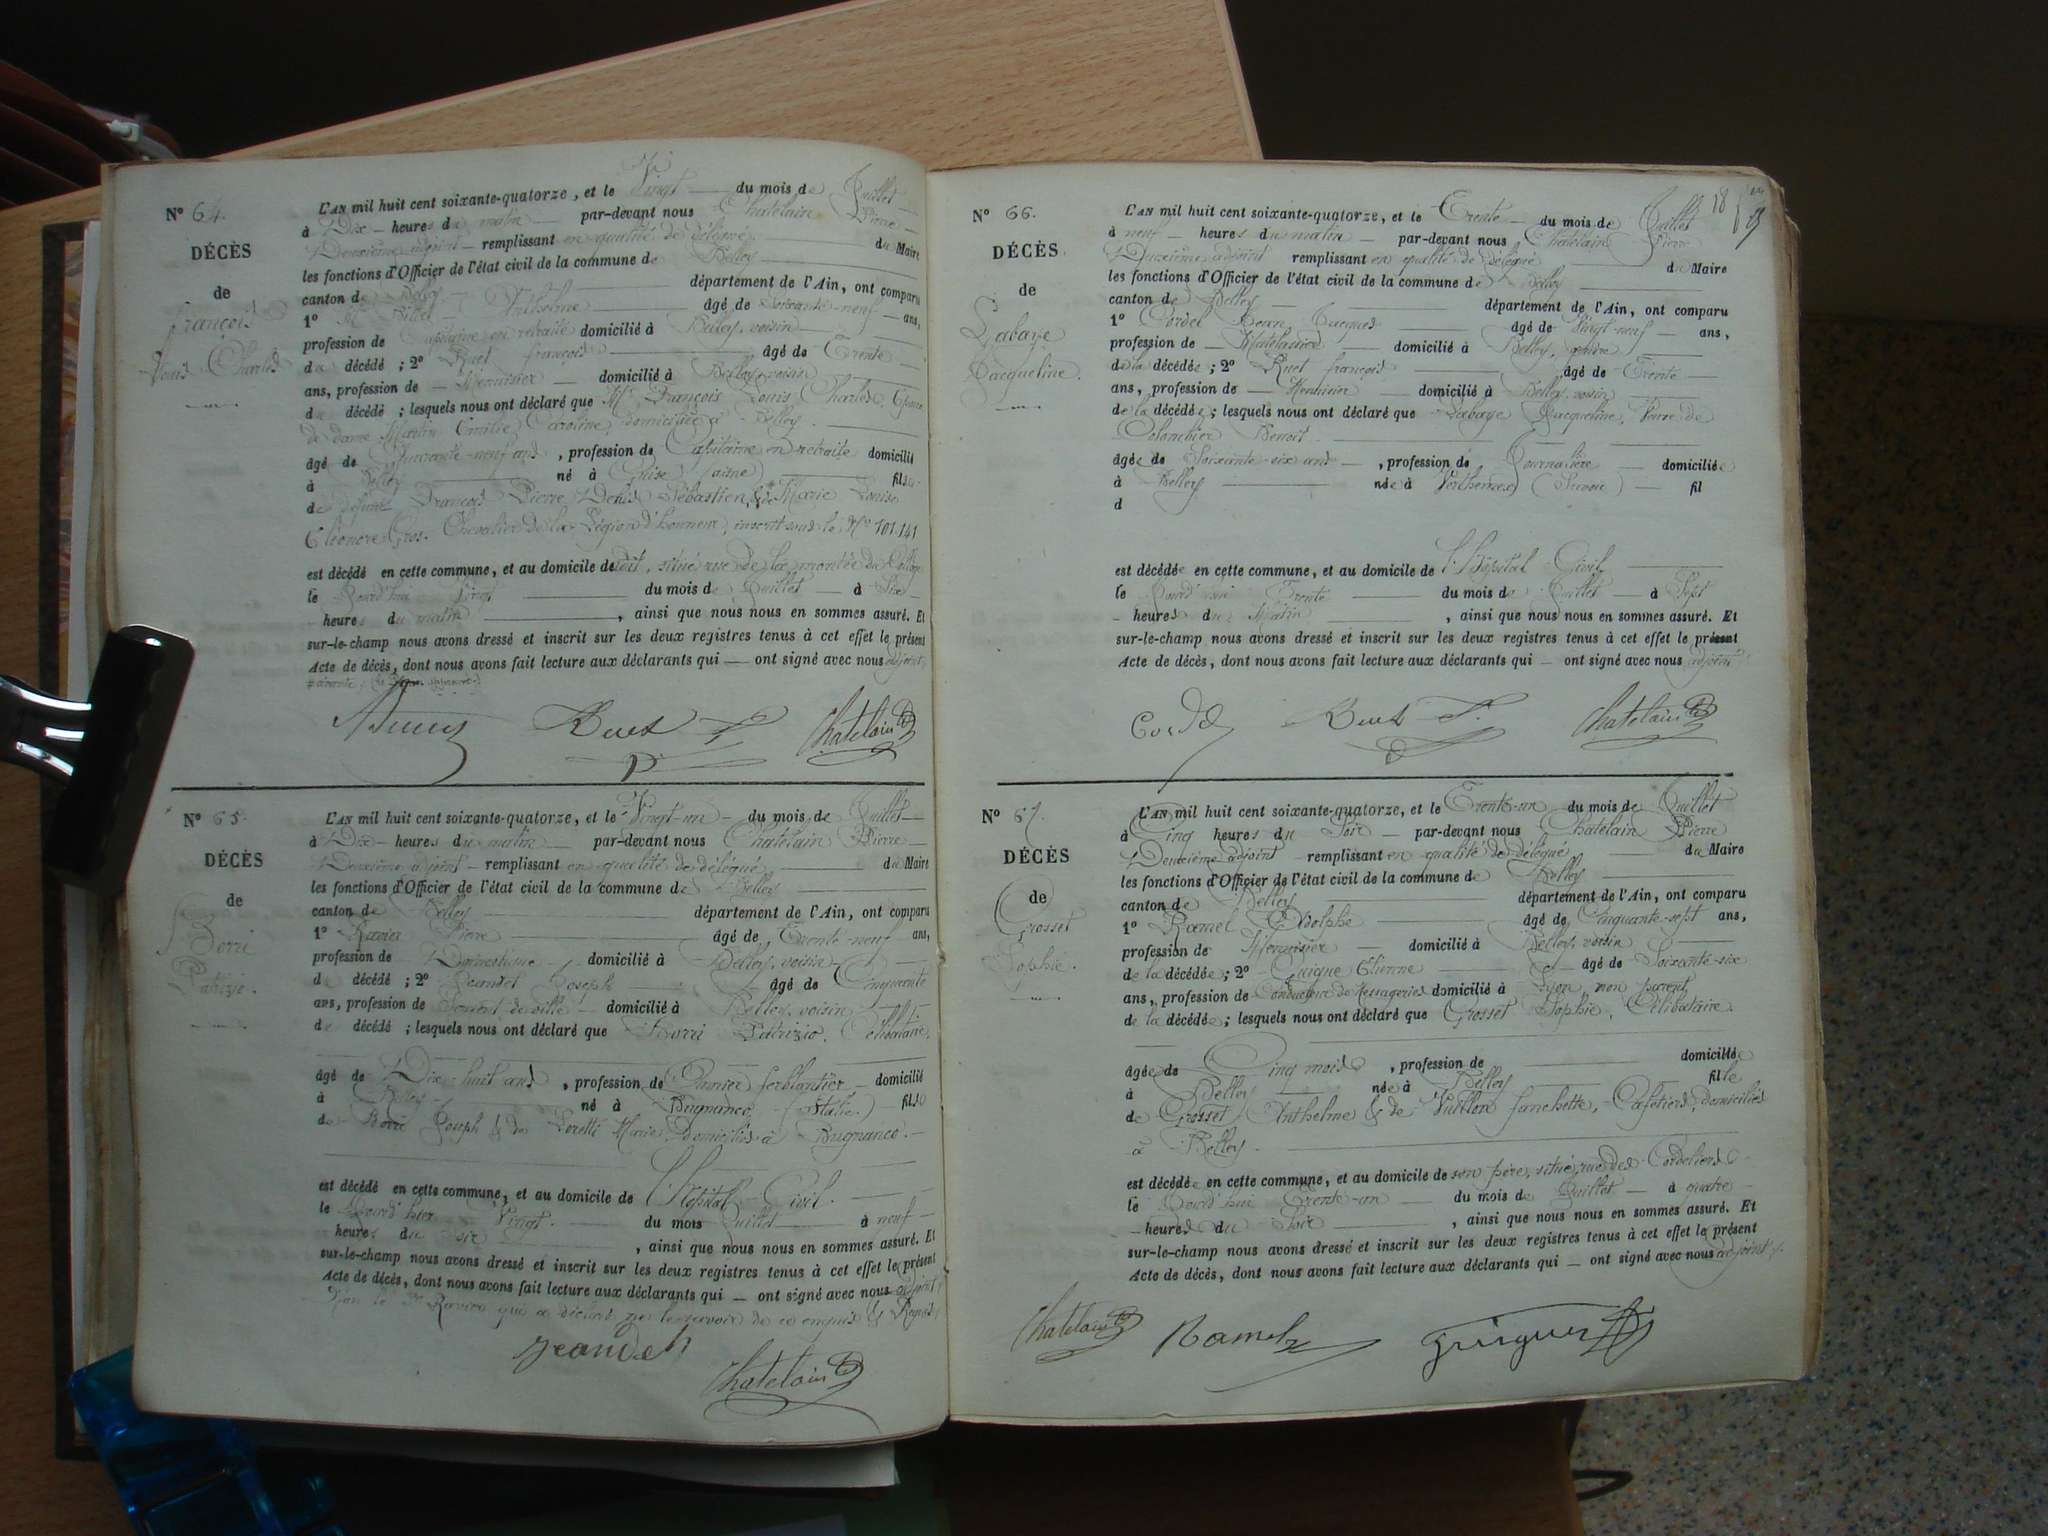 N° 64.
DÉCÈS
de
François
Louis Charles
L'AN mil huit cent soixante-quatorze, et le Vingt du mois de Juillet
à Dix heures du matin par-devant nous Chatelain Pierre
Deuxième adjoint remplissant en qualité de délégué du Maire
les fonctions d'Officier de l'état civil de la commune de Belley
canton de Belley département de l'Ain, ont comparu
1° Mr Anthelme âgé de soixante-neuf ans,
profession de Capitaine en retraite domicilié à Belley, voisin
du décédé ; 2° Ruet françois âgé de Trente
ans, profession de Menuisier domicilié à Belley, voisin
du décédé ; lesquels nous ont déclaré que Mr François Louis Charles, Epoux
de dame Martin Emilie Caroline, domiciliée à Belley.
âgé de Quarante-neuf ans, profession de Capitaine en retraite domicilié
à Belley né à Guise (aisne) fils
de défunt François Pierre Denis Sébastien, & de Marie Louise
Eléonore Gros. Chevalier de la Légion d'honneur, inscrit sous le N° 101.141
est décédé en cette commune, et au domicile de dit, situé rue de la montée du Collège
le jourd'hui Vingt du mois de Juillet à Six
heures du matin, ainsi que nous nous en sommes assuré. Et
sur-le-champ nous avons dressé et inscrit sur les deux registres tenus à cet effet le présent
Acte de décès, dont nous avons fait lecture aux déclarants qui — ont signé avec nous adjoint.
Ruet F. Chatelain
N° 65.
DÉCÈS
de
Borri
Patrizio.
L'AN mil huit cent soixante-quatorze, et le Vingt-un du mois de Juillet
à Dix heures du matin par-devant nous Chatelain Pierre
Deuxième adjoint remplissant en qualité de délégué du Maire
les fonctions d'Officier de l'état civil de la commune de Belley
canton de Belley département de l'Ain, ont comparu
1° Ravier Pierre âgé de Trente-neuf ans,
profession de Domestique domicilié à Belley, voisin
du décédé ; 2° Jeandet Joseph âgé de Cinquante
ans, profession de Sergent de ville domicilié à Belley, voisin
du décédé ; lesquels nous ont déclaré que Borri Patrizio, Célibataire,
âgé de Dix-huit ans, profession de Ouvrier ferblantier domicilié
à Belley né à Bugnanco (Italie) fils
de Borri Joseph & de Loretti Marie, domiciliés à Bugnanco.
est décédé en cette commune, et au domicile de l'Hôpital Civil.
le jourd'hier Vingt du mois Juillet à neuf
heures du soir, ainsi que nous nous en sommes assuré. Et
sur-le-champ nous avons dressé et inscrit sur les deux registres tenus à cet effet le présent
Acte de décès, dont nous avons fait lecture aux déclarants qui — ont signé avec nous adjoint,
non le Sr Ravier qui a déclaré ne le savoir de ce enquis & Requis.
Jeandet
Chatelain
18
N° 66.
DÉCÈS
de
Labaye
Jacqueline.
L'AN mil huit cent soixante-quatorze, et le Trente du mois de Juillet
à neuf heures du matin par-devant nous Chatelain Pierre
Deuxième adjoint remplissant en qualité de délégué du Maire
les fonctions d'Officier de l'état civil de la commune de Belley
canton de Belley département de l'Ain, ont comparu
1° Cordel Jean Jacques âgé de Vingt-neuf ans,
profession de Matelassier domicilié à Belley, gendre
de la décédée ; 2° Ruet françois âgé de Trente
ans, profession de Menuisier domicilié à Belley, voisin
de la décédée ; lesquels nous ont déclaré que Labaye Jacqueline, Veuve de
Colombier Benoit.
âgée de Soixante-six ans, profession de Journalière domiciliée
à Belley née à Verthemex (Savoie) fil
d
est décédée en cette commune, et au domicile de l'Hôpital Civil
le jourd'hui Trente du mois de Juillet à Sept
heures du Matin, ainsi que nous nous en sommes assuré. Et
sur-le-champ nous avons dressé et inscrit sur les deux registres tenus à cet effet le présent
Acte de décès, dont nous avons fait lecture aux déclarants qui — ont signé avec nous adjoint.
Cordel Ruet F. Chatelain
N° 67.
DÉCÈS
de
Grosset
Sophie.
L'AN mil huit cent soixante-quatorze, et le Trente-un du mois de Juillet
à Cinq heures du Soir par-devant nous Chatelain Pierre
Deuxième adjoint remplissant en qualité de délégué du Maire
les fonctions d'Officier de l'état civil de la commune de Belley
canton de Belley département de l'Ain, ont comparu
1° Ramel Adolphe âgé de Cinquante-sept ans,
profession de Menuisier domicilié à Belley, voisin
de la décédée ; 2° Guigue Etienne âgé de Soixante-six
ans, profession de Conducteur de Messageries domicilié à Lyon, non parent
de la décédée ; lesquels nous ont déclaré que Grosset Sophie, Célibataire.
âgée de Cinq mois, profession de domiciliée
à Belley née à Belley fille
de Grosset Anthelme & de Vuillon fanchette, Cafetiers, domiciliés
à Belley.
est décédée en cette commune, et au domicile de son père, situé rue des Cordeliers
le jourd'hui Trente-un du mois de Juillet à quatre
heures du Soir, ainsi que nous nous en sommes assuré. Et
sur-le-champ nous avons dressé et inscrit sur les deux registres tenus à cet effet le présent
Acte de décès, dont nous avons fait lecture aux déclarants qui — ont signé avec nous adjoint.
Chatelain Ramel Guigue